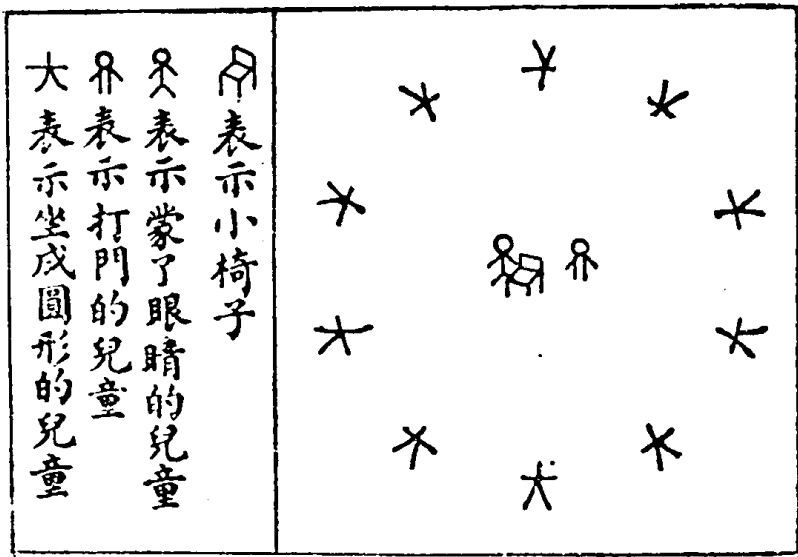 表示小椅子
表示蒙了眼睛的兒童
表示打門的兒童
大表示坐成圓形的兒童